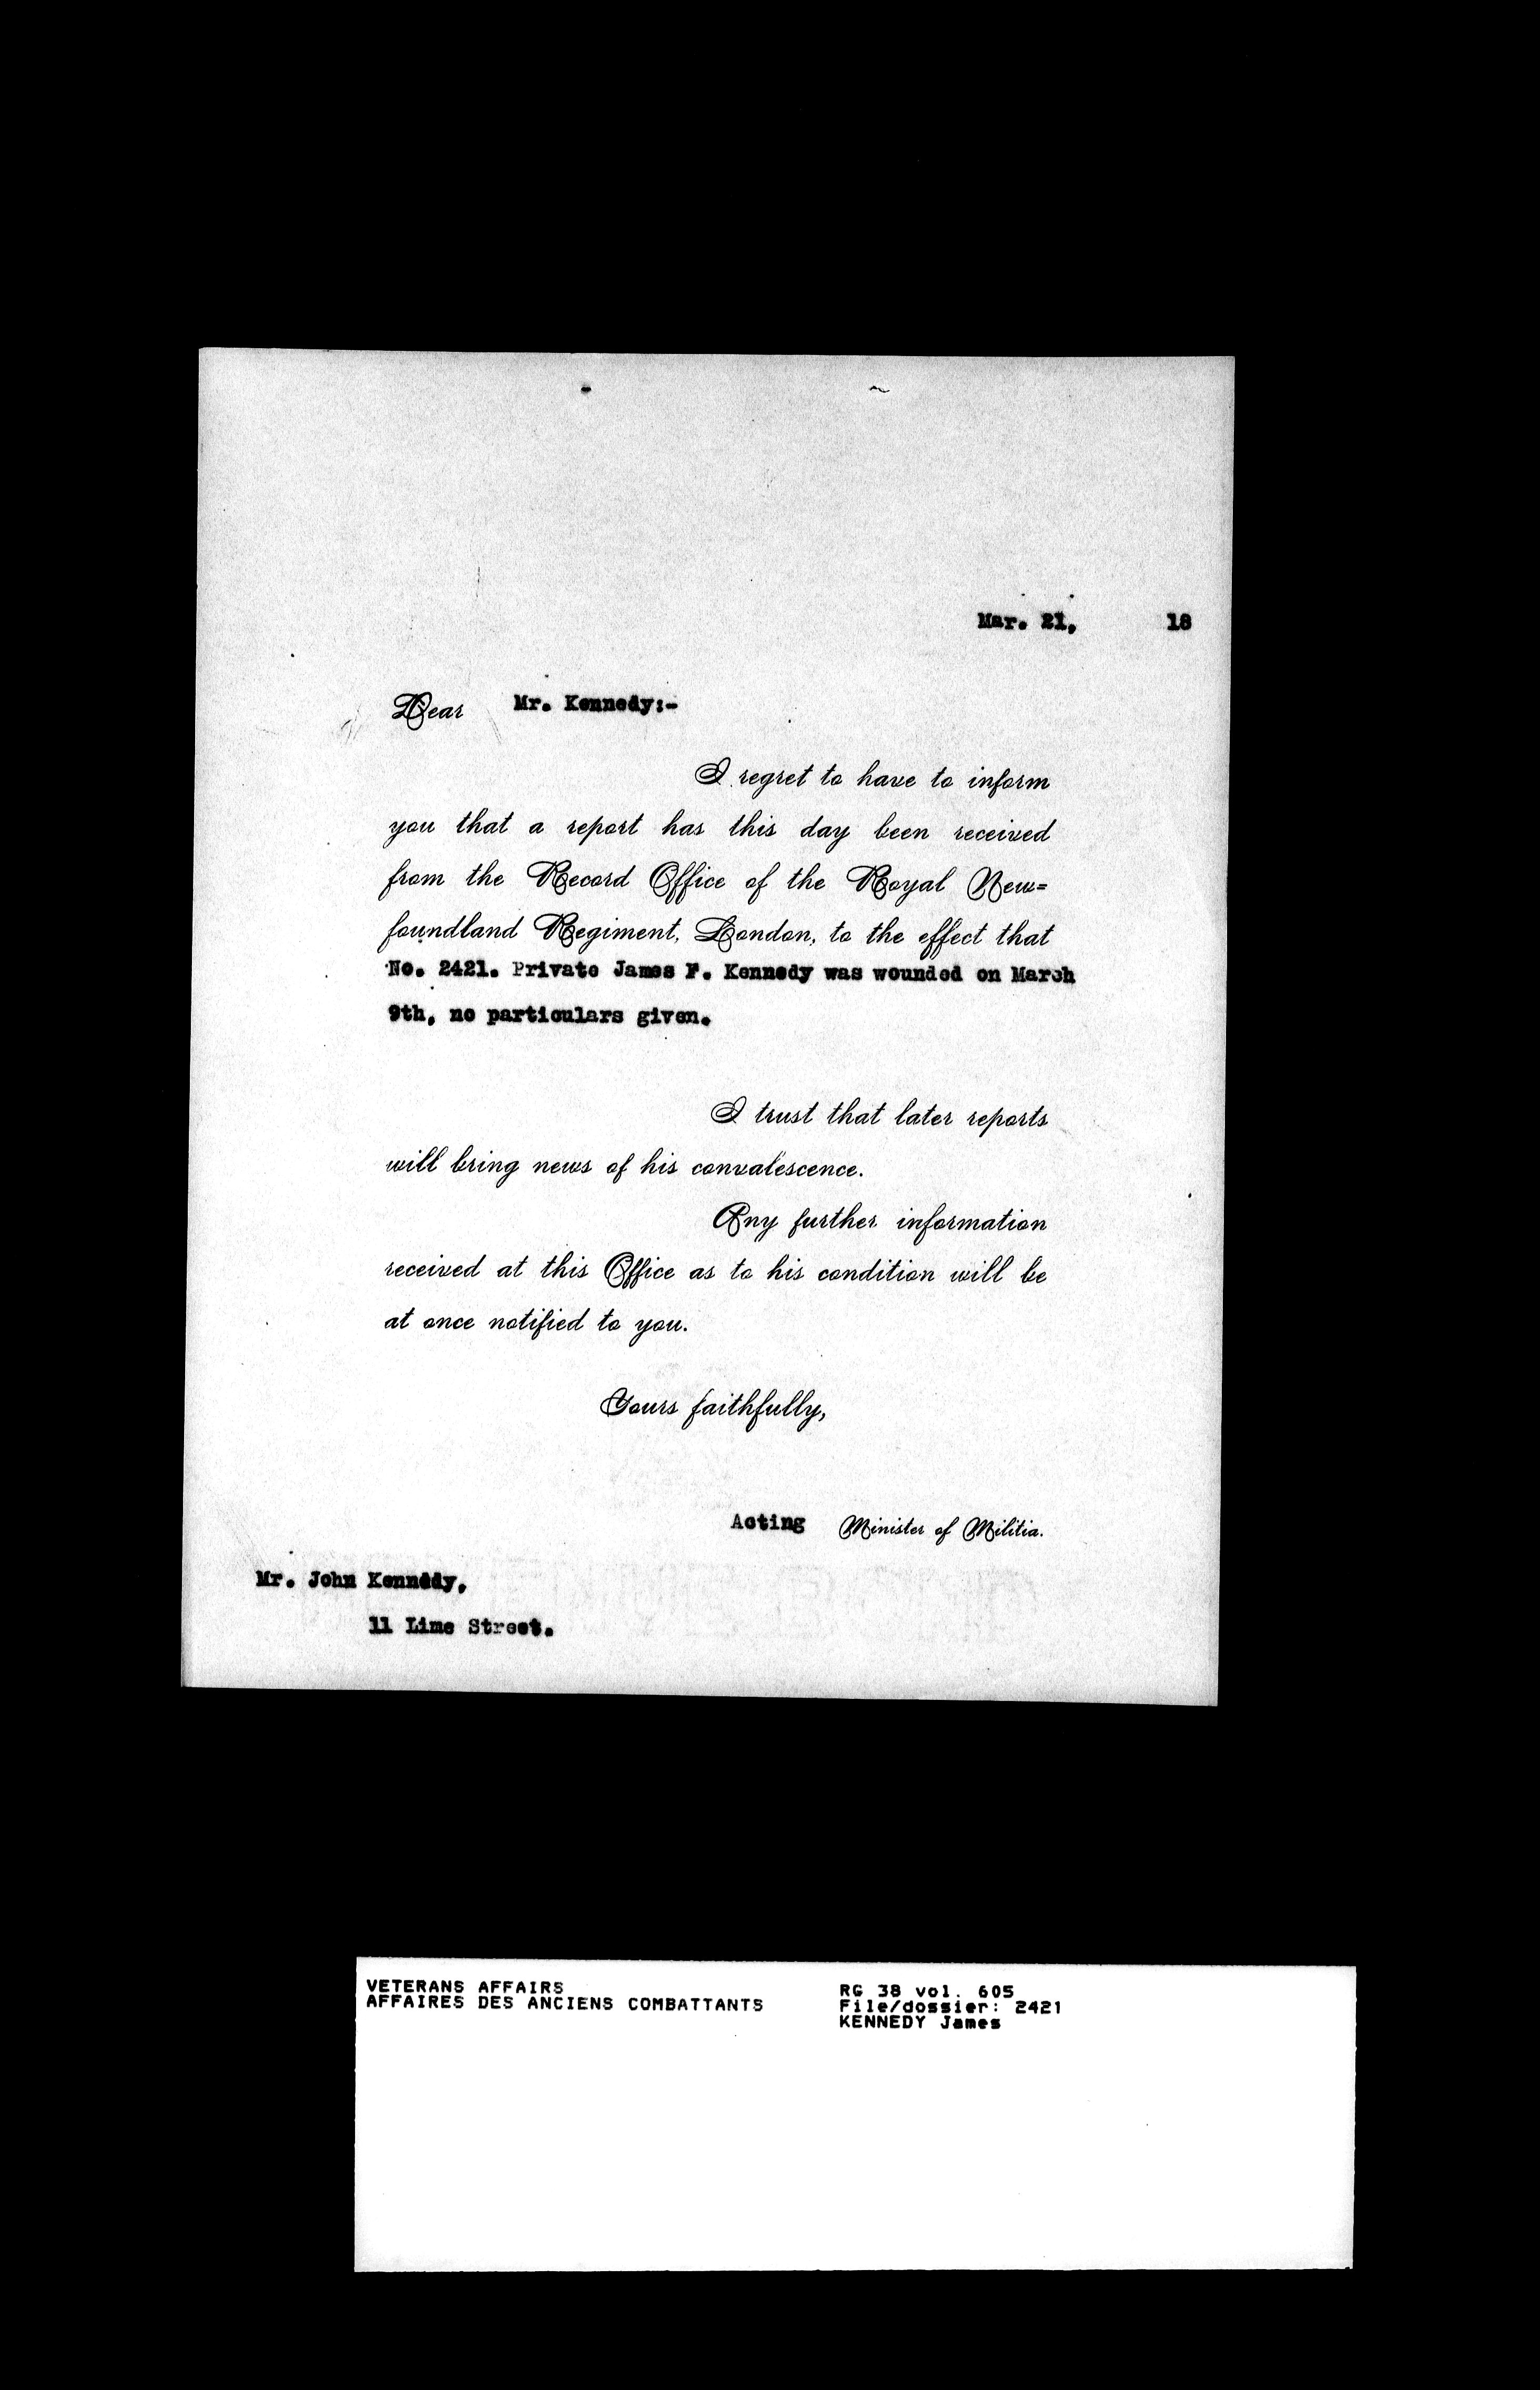 Mar. 21, 18
Dear Mr. Kennedy:-
I regret to have to inform
you that a report has this day been received
from the Record Office of the Royal New=
foundland Regiment, London, to the effect that
No. 2421. Private James F. Kennedy was wounded on March
9th, no particulars given.
I trust that later reports
will bring news of his convalescence.
Any further information
received at this Office as to his condition will be
at once notified to you.
Yours faithfully,
Acting Minister of Militia.
Mr. John Kennedy,
11 Lime Street.
VETERANS AFFAIRS
AFFAIRES DES ANCIENS COMBATTANTS
RG 38 vol. 605
File/dossier: 2421
KENNEDY James